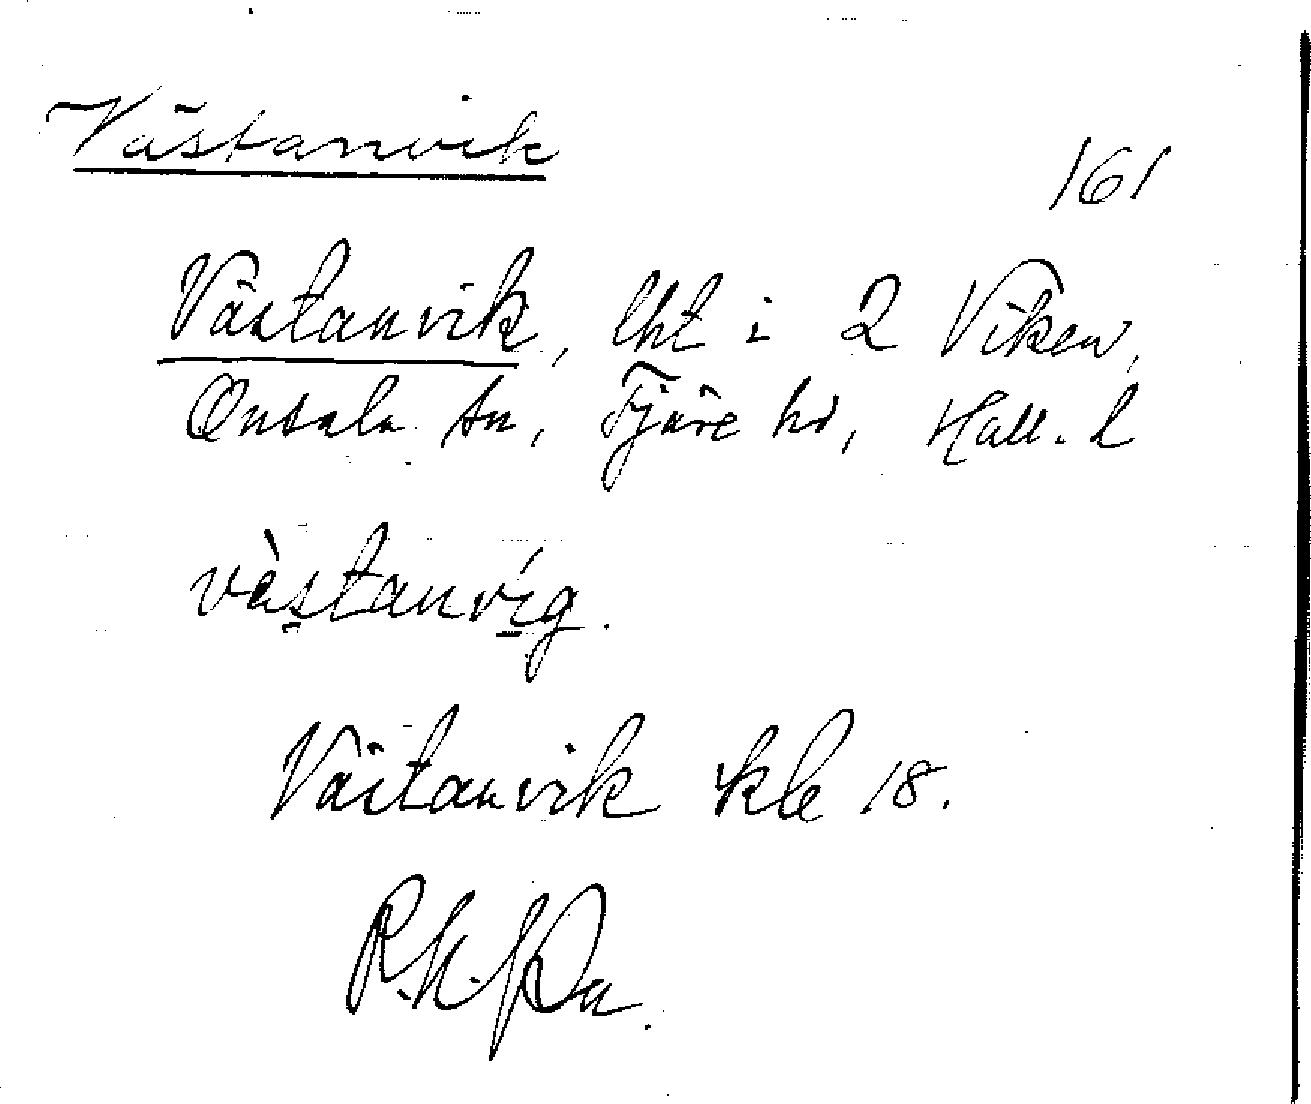 Västanvik
161
Västanvik, lht i 2 Viken,
Onsala sn, Fjäre hd, Hall. l
vàstanvíg.
Västanvik kle 18.